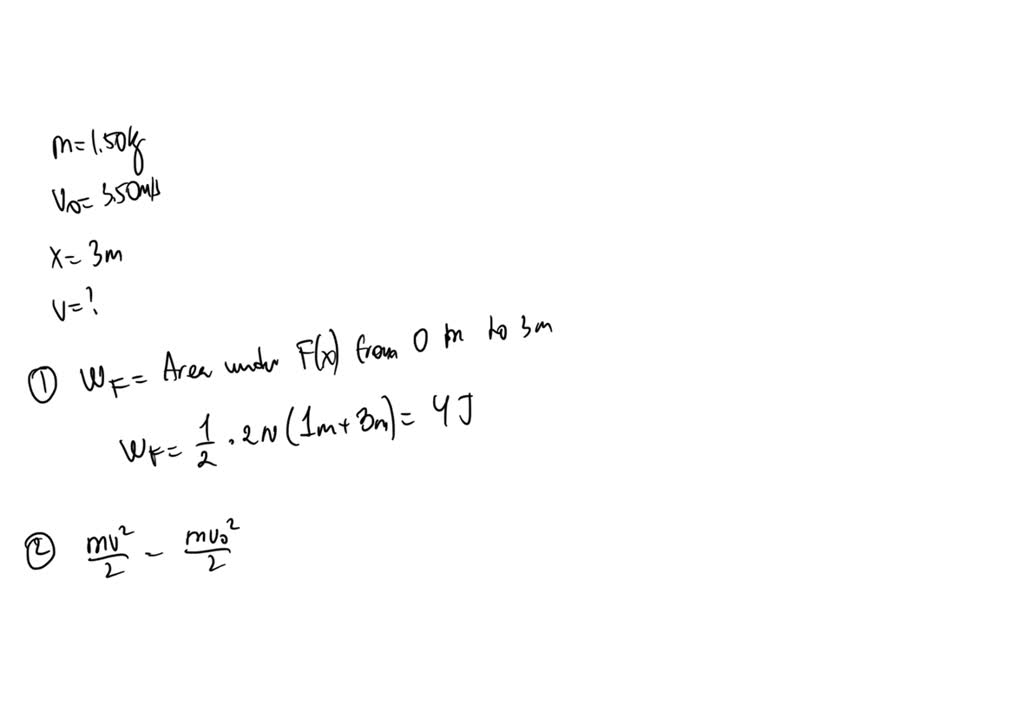 m=1.50kg
v₀= 3.50m/s
x= 3m
v=?
① W_F= Area under F(x) from 0 m to 3m
W_F= 1/2 . 2N (1m+3m)= 4J
② mv²/2 - mv₀²/2